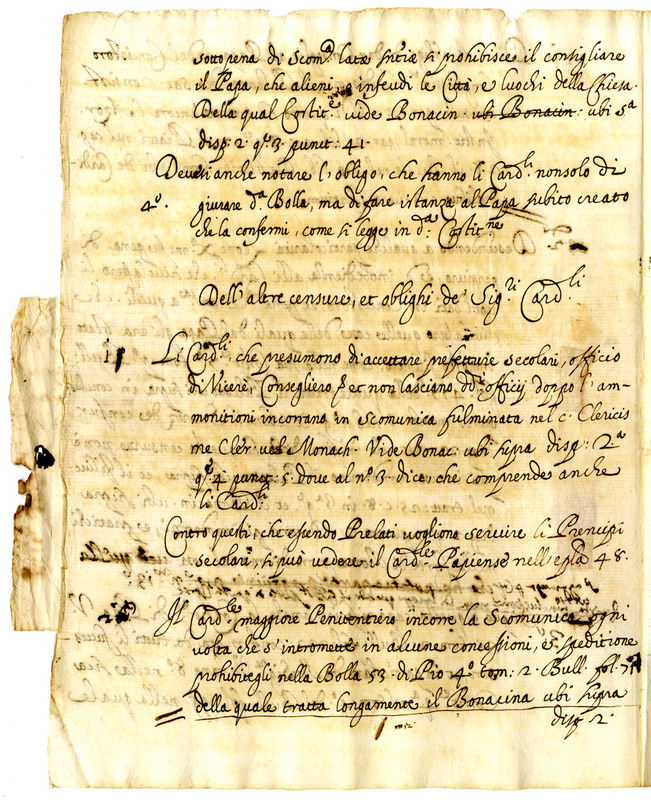 sotto pena di Scom.ª latæ sntiæ si prohibisce il consigliare
il Papa, che alieni, o infeudi le Città, e luochi della Chiesa.
Della qual Costit.ne vide Bonacin: ubi Bonacin: ubi sª
disp: 2. q. 3. punct: 41.
Devesi anche notare l'obligo, che hanno li Card.li non solo di
4º. giurare d.ª Bolla, ma di fare istanza al Papa subito creato
che la confermi, come si legge in d.ª Costit.ne
Dell'altre censure, et oblighi de Sig.ri Card.li
1 Li Card.li, che presumono di accettare prefetture secolari, officio
di Vicerè, Consegliero et non lasciano dd. officij doppo l'am-
monitioni incorrano in Scomunica fulminata nel c. Clericis
ne Cler: vel Monach. Vide Bonac: ubi supra disp: 2ª
q. 4. punct: 5. dove al nº 3. dice, che comprende anche
li Card.li
Contro questi, che essendo Prelati vogliono servire li Prencipi
secolari, si può vedere il Card.le Papiense nell'epla 48.
2 Il Card.le maggiore Penitentiero incorre la Scomunica ogni
volta che s'intromette in alcune concessioni, e speditione
prohibitegli nella Bolla 53. di Pio 4º tom: 2. Bull. fol. 71
della quale tratta longamente il Bonacina ubi supra
disp 2.